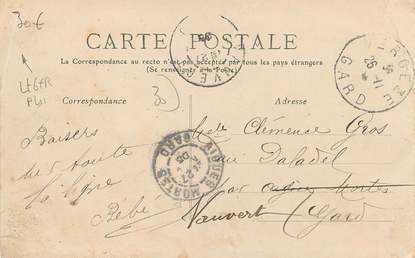 30€
LEGER
PLI
CARTE POSTALE
La Correspondance au recto n'est pas acceptée par tous les pays étrangers
(Se renseigner à la Poste)
Correspondance
Adresse
30
GARD
26 -11
VAUVERT
AIGUES-MORTES
GARD
27
05
Baisers
sur toute
la ligne
Bébé
Clémence Gros
Daladel
par Aigues Mortes
Vauvert
(Gard)